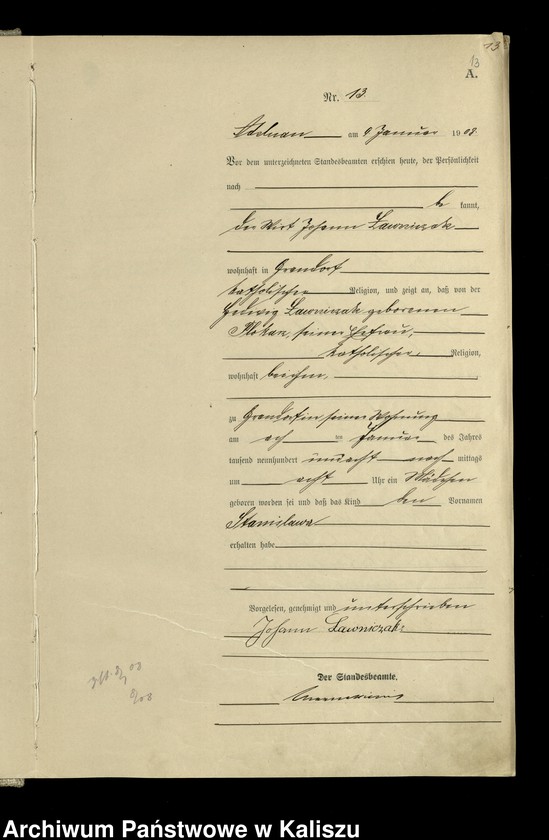 13
13
A.
Nr. 13.
Adelnau am 9 Januar 1908.
Vor dem unterzeichneten Standesbeamten erschien heute, der Persönlichkeit
nach
be kannt,
der Wirt Johann Ławniczak
wohnhaft in Grandorf
katholischer Religion, und zeigt an, daß von der
Hedwig Ławniczak geborenen
seiner Ehefrau,
katholischer Religion,
wohnhaft bei ihm,
zu Grandorf in seiner Wohnung
am im Januar des Jahres
tausend neunhundert und acht nach mittags
um acht Uhr ein Mädchen
geboren worden sei und daß das Kind den Vornamen
Stanislawa
erhalten habe
Vorgelesen, genehmigt und unterschrieben
Johann Ławniczak
Der Standesbeamte.
Archiwum Państwowe w Kaliszu